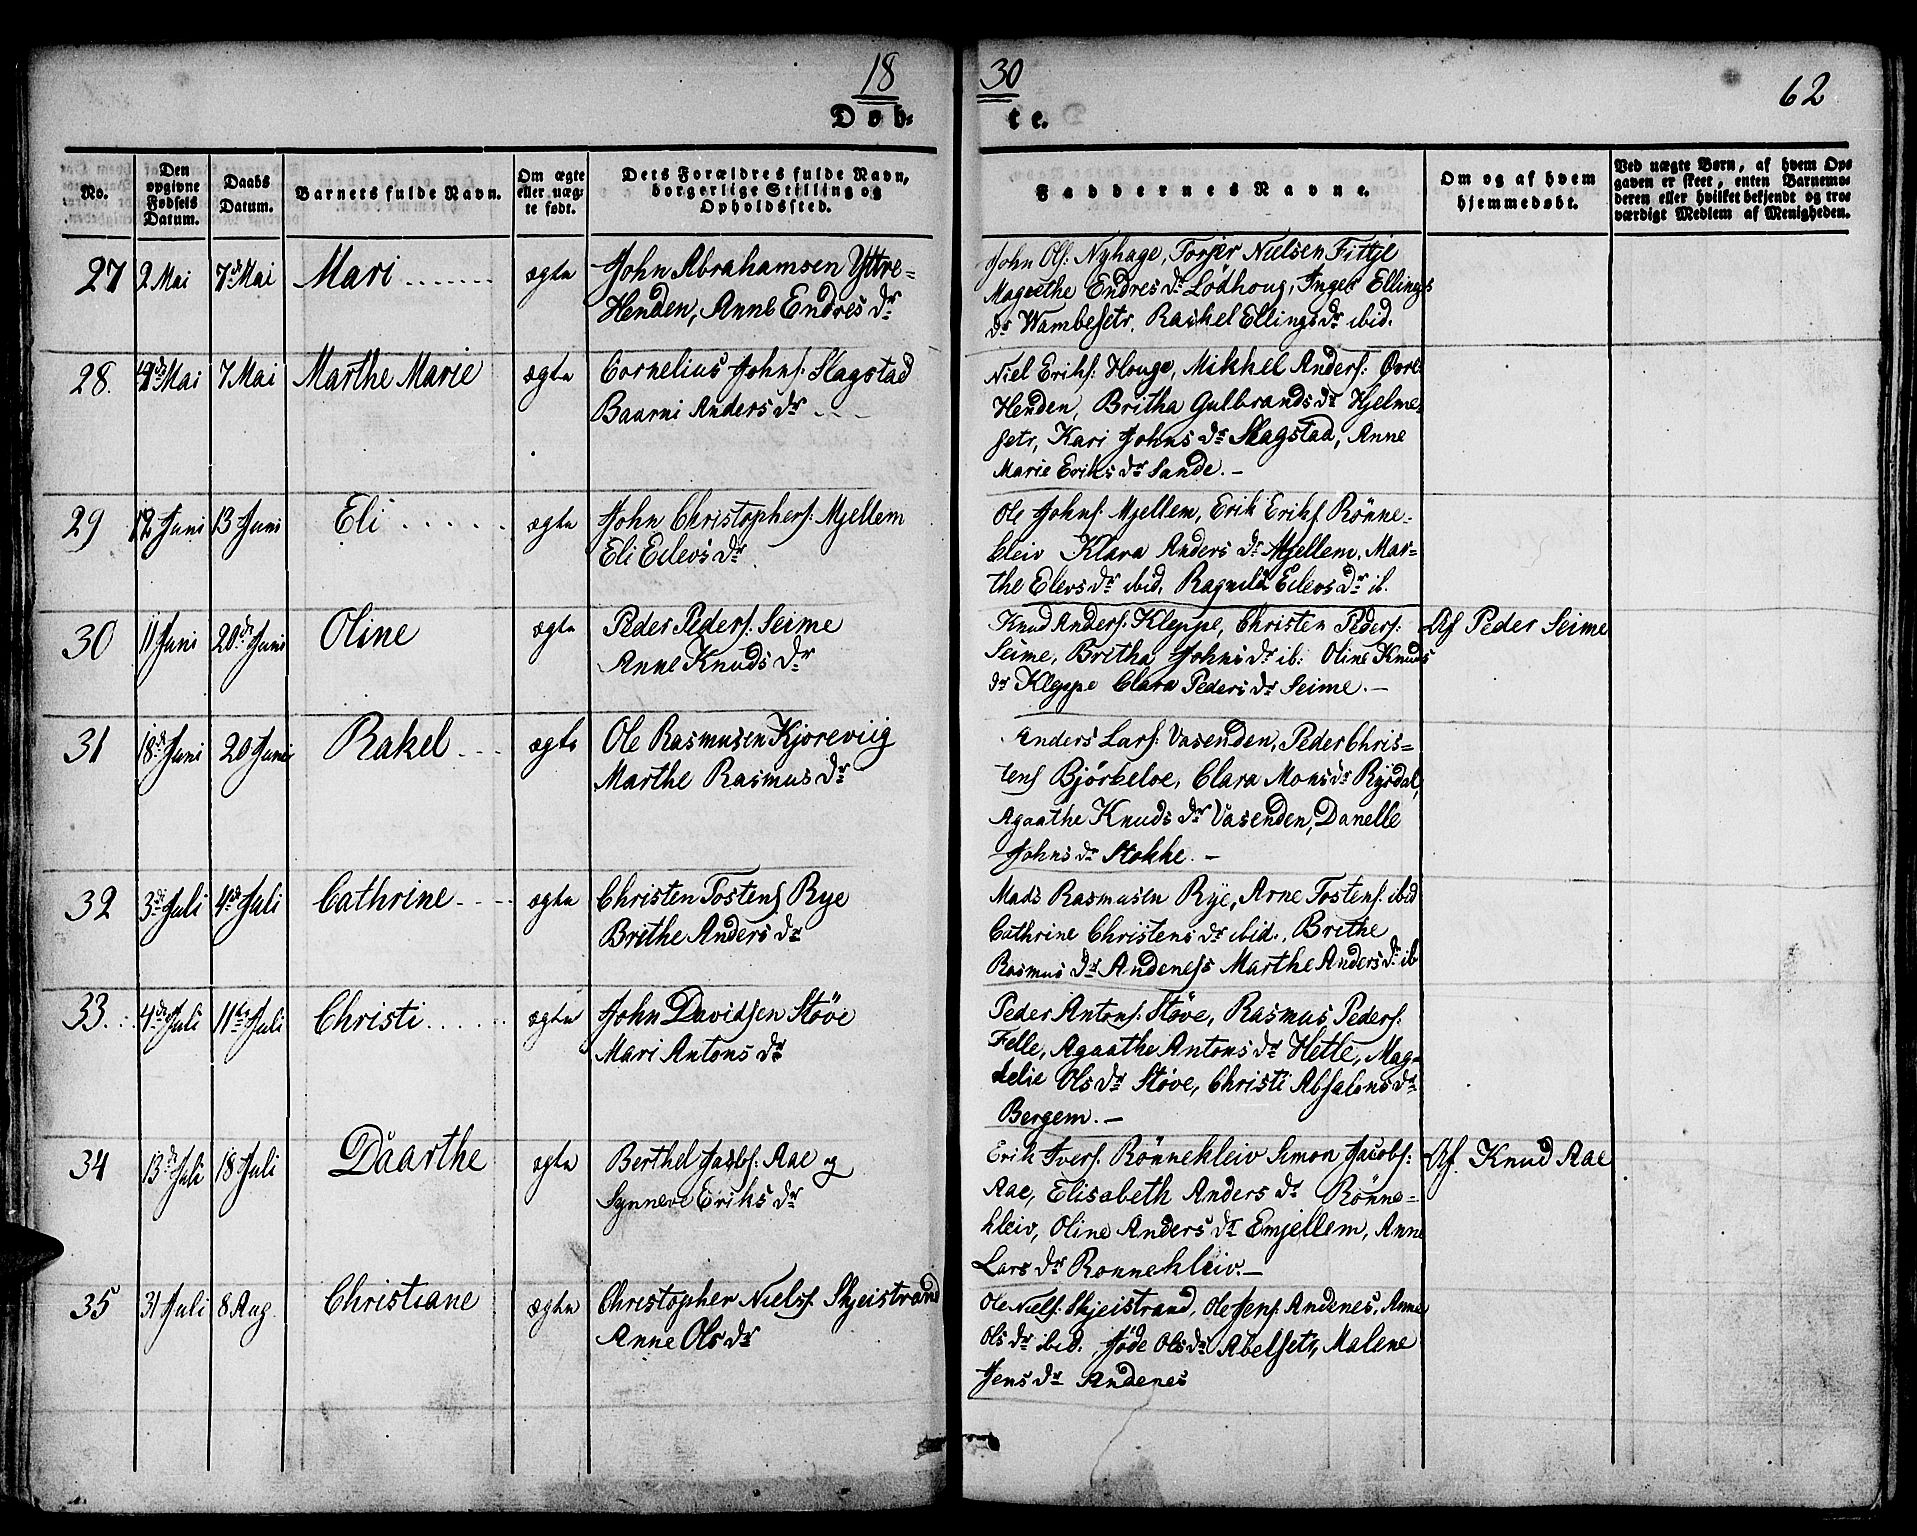 18 30
62
Døb- te.
No.
Den opgivne Fødsels Datum.
Daabs Datum.
Barnets fulde Navn.
Om ægte eller uæg-te født.
Dets Forældres fulde Navn, borgerlige Stilling og Opholdssted.
Faddernes Navne.
Om og af hvem hjemmedøbt.
Ved uægte Børn, af hvem Op-gaven er skeet, enten Barnemo-deren eller hvilket bekjendt og tro-værdigt Medlem af Menigheden.
27 2 Mai 7de Mai Mari ægte
John Abrahamsen Yttre-
Henden, Anne Endres dr
John Ols: Nyhage, Torjer Nielsen Fittje
Magrethe Endres dr Lödhoug, Inger Ellings
dr Wambesetr, Rachel Ellings dr ibid.
28. Mai 7 Mai Marthe Marie ægte
Cornelius Johns: Slagstad
Baarni Anders dr
Niel Eriks: Houge, Mikkel Anders: Övre
Henden, Britha Gulbrands dr Hjelme-
setr, Kari Johns dr Slagstad, Anne
Marie Eriks dr Sande. -
29 12 Juni 13 Juni Eli ægte
John Christophers: Mjellem
Eli Eilevs dr
Ole Johns: Mjellem, Erik Eriks Rönne-
kleiv Klara Anders dr Mjellem, Mar-
the Elevs dr ibid, Ragnild Eilevs dr ib.
30 11 Juni 20de Juni Oline ægte
Peder Peders: Seime
Anne Knuds dr
Knud Anders: Kleppe, Christen Peders:
Seime, Britha Johns dr ib: Oline Knuds
dr Kleppe Clara Peders dr Seime. -
Af Peder Seime
31 18de Juni 20 Juni Rakel ægte
Ole Rasmusen Kjoreviig
Marthe Rasmus dr
Anders Lars: Vasenden, Peder Chris-
tens Björkeloe, Clara Mons dr Ryrdal,
Agaathe Knuds dr Vasenden, Danelle
Johns dr Stokke. -
32 3de Juli 4de Juli Cathrine ægte
Christen Tostens Rye
Brithe Anders dr
Mads Rasmusen Rye, Arne Tostens: ibid
Cathrine Christens dr ibid., Brithe
Rasmus dr Andeness Marthe Anders dr ib
33. 4de Juli 11te Juli Christi ægte
John Davidsen Støve
Mari Antons dr
Peder Antons: Støve, Rasmus Peders:
Felle, Agaathe Antons dr Hette, Mag-
delie Ols dr Støve, Christi Absalons dr
Bergem. -
34 13de Juli 18 Juli Daarthe ægte
Berthel Jacobs: Aae og
Synneve Eriks dr
Erik Ivers: Rönnekleiv Simon Jacobs:
Aae, Elisabeth Anders dr Rönne-
kleiv, Oline Anders dr Emjellem, Anne
Lars dr Ronnekleiv. -
Af Knud Aae
35 31 Juli 8 Aug Christiane ægte
Christopher Niels: Skjeistrand
Anne Ols dr
Ole Niels: Skjeistrand, Ole Jens: Andenes, Anne
Ols dr ibid. Jøde Ols dr Abelsetr, Malene
Jens dr Andenes